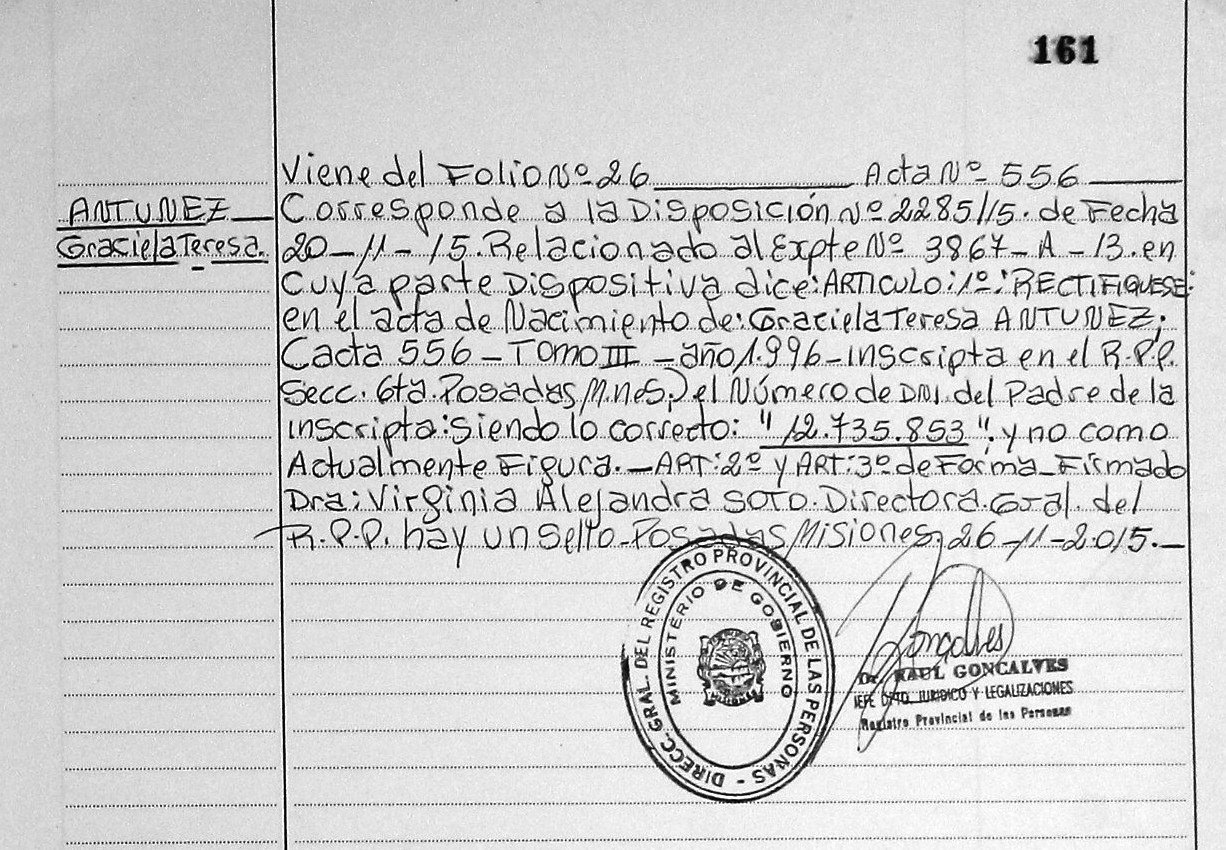 161
Viene del Folio Nº 26 Acta Nº 556
ANTUNEZ
Graciela Teresa.
Corresponde a la Disposición Nº 2285/15. de Fecha
20-11-15. Relacionado al Expte Nº 3867-A-13. en
Cuya parte Dispositiva dice: ARTICULO: 1º: RECTIFIQUESE:
en el acta de Nacimiento de: Graciela Teresa ANTUNEZ;
(acta 556 - TOMO III - año 1.996 - inscripta en el R.P.P.
Secc. 6ta. Posadas M.nes.) el Número de DNI. del Padre de la
inscripta: siendo lo correcto: "12.735.853". y no como
Actualmente Figura. - ART: 2º y ART: 3º de Forma - Firmado
Dra: Virginia Alejandra SOTO. Directora. Gral. del
R.P.P. hay un sello - Posadas Misiones, 26-11-2.015. -
DIRECC. GRAL. DEL REGISTRO PROVINCIAL DE LAS PERSONAS -
MINISTERIO DE GOBIERNO
Goncalves
Dr. RAUL GONCALVES
JEFE DPTO. JURIDICO Y LEGALIZACIONES
Registro Provincial de las Personas